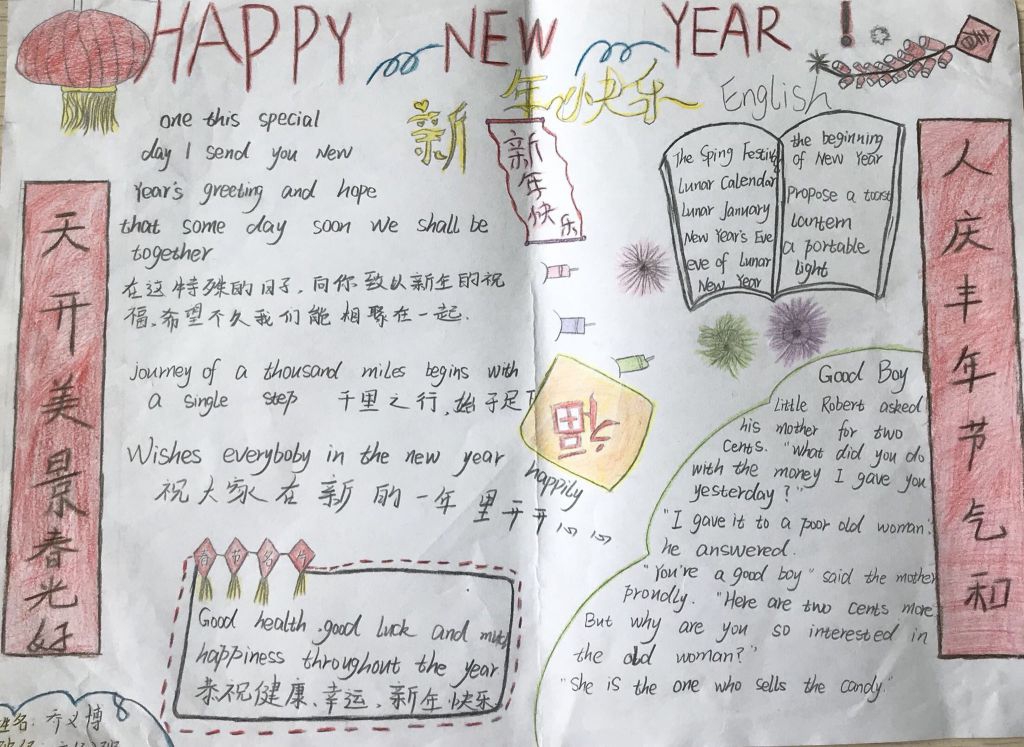 HAPPY NEW YEAR !
新年快乐
English
天开美景春光好
one this special
day I send you New
Year's greeting and hope
that some day soon we shall be
together
在这特殊的日子,向你致以新年的祝
福,希望不久我们能相聚在一起.
journey of a thousand miles begins with
a single step 千里之行,始于足下
Wishes everyboby in the new year happily
祝大家在新的一年里开开心心
春节
Good health .good luck and much
happiness throughout the year
恭祝健康、幸运,新年快乐
姓名:乔义博
新年快乐
福
The Sping Festivg
Lunar Calendar
Lunar January
New Year's Eve
eve of Lunar
New Year
the beginning
of New Year
propose a toast
lantern
a portable
light
Good Boy
Little Robert asked
his mother for two
cents. "what did you do
with the money I gave you
yesterday?"
"I gave it to a poor old woman."
he answered.
"You're a good boy" said the mother
proudly. "Here are two cents more
But why are you so interested in
the old woman?"
"She is the one who sells the candy."
春
人庆丰年节气和